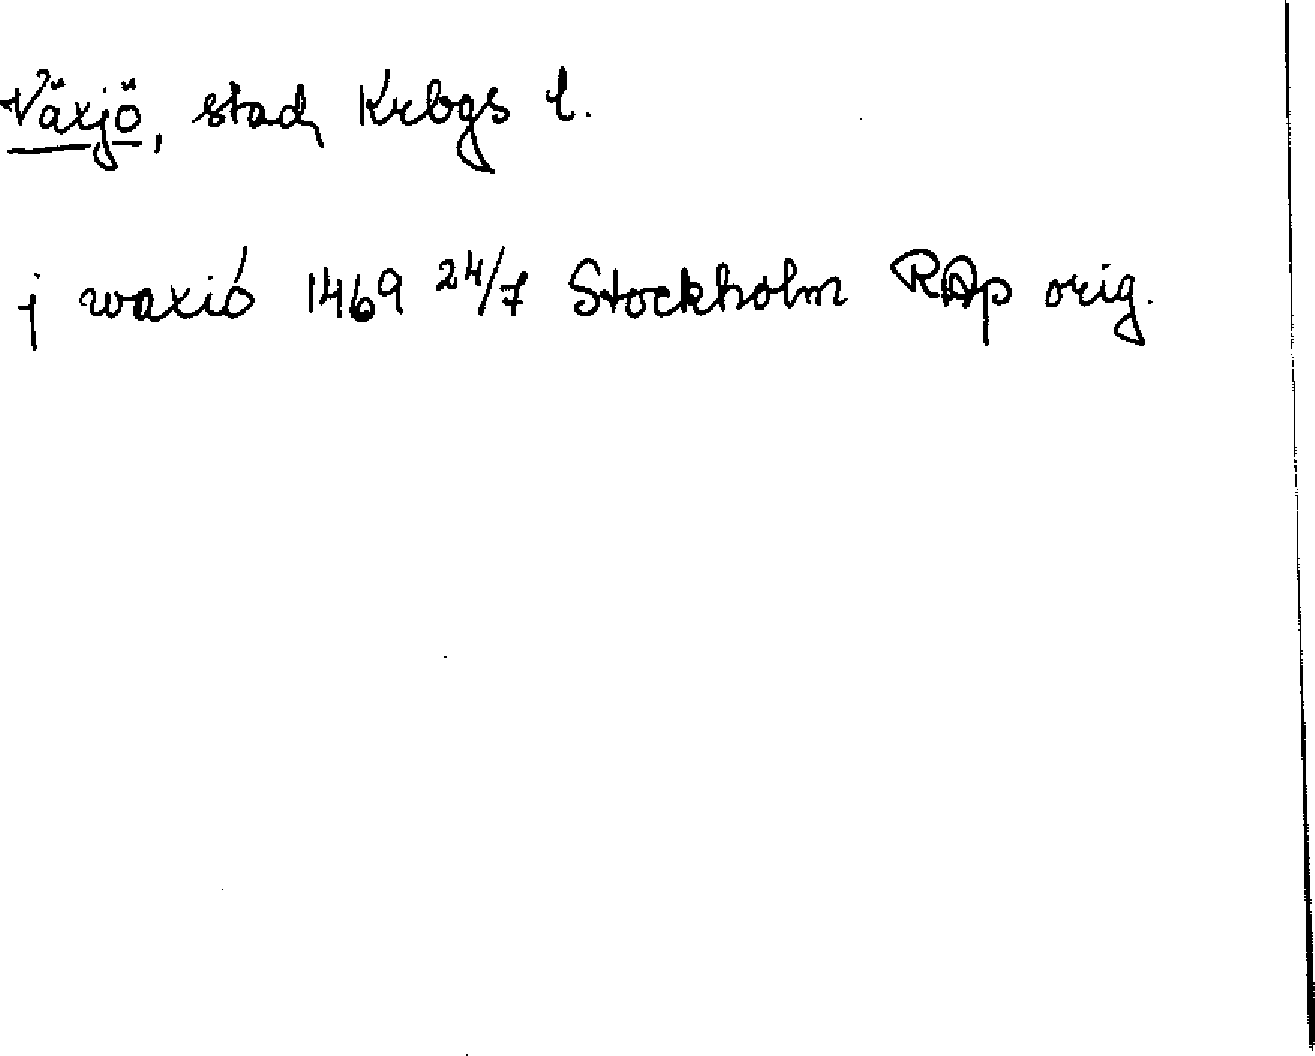 Växjö, stad, Krbgs l.
j waxió 1469 24/7 Stockholm RAp orig.